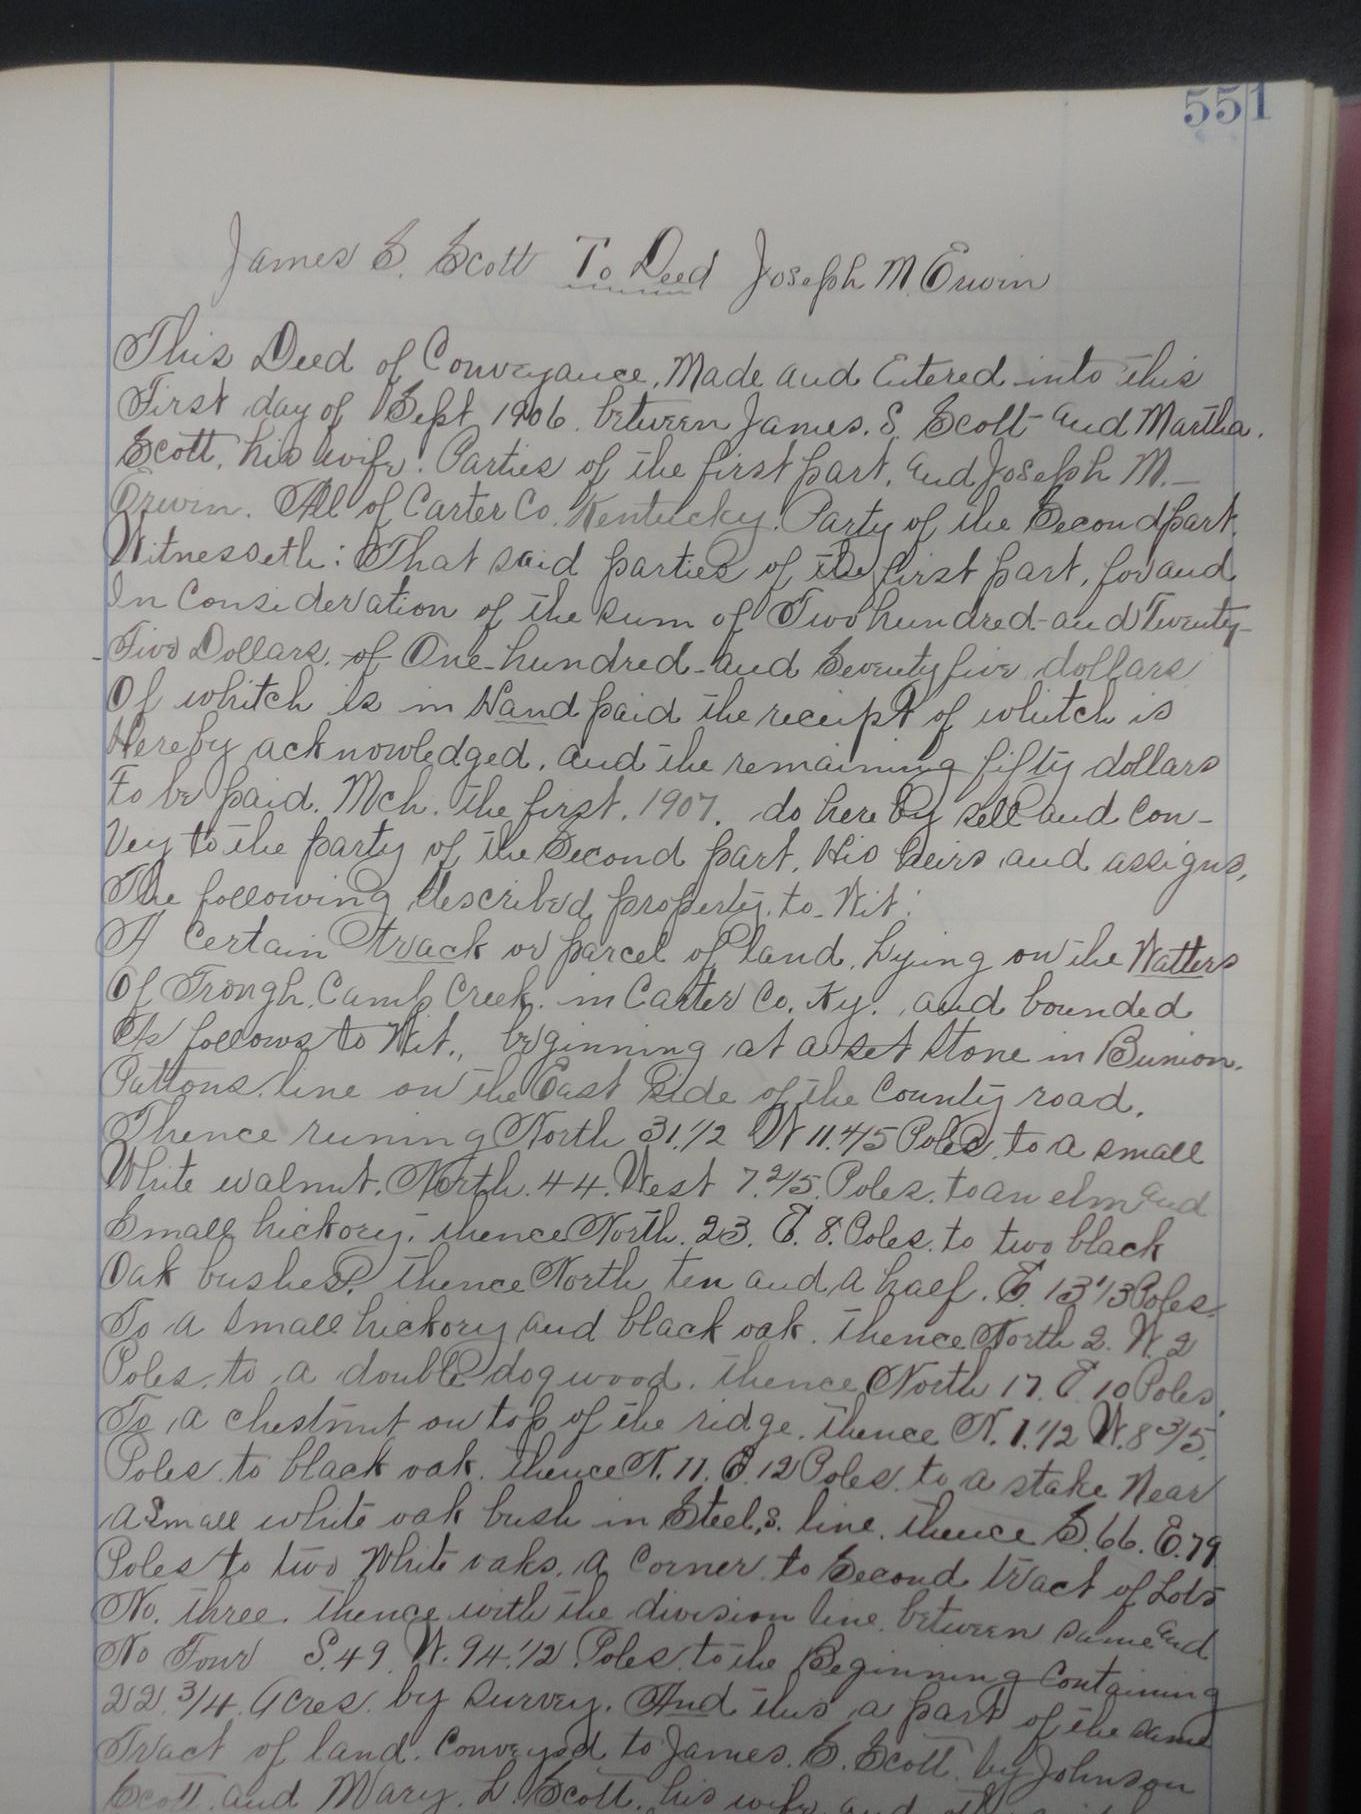 551
James S. Scott To Deed Joseph M. Erwin
This Deed of Conveyance, Made and Entered into this
First day of Sept 1906. between James. S. Scott and Martha.
Scott, his wife. Parties of the first part, and Joseph M.—
Erwin. All of Carter Co. Kentucky. Party of the Second part.
Witnesseth: That said parties of the first part, for and
In Consideration of the sum of Two hundred and Twenty-
Five Dollars. of One-hundred-and Seventy five dollars
Of whitch is in Hand paid the receipt of whitch is
Hereby acknowledged, and the remaining fifty dollars
To be paid. Mch. the first, 1907. do here by sell and Con-
Vey to the party of the Second part, His heirs and assigns,
The following described property, to-Wit:
A Certain Track or parcel of land, Lying on the Watters
Of Trough Camp Creek. in Carter Co. Ky., and bounded
As follows to Wit., beginning at a set stone in Bunion.
Pattons line on the East Side of the County road.
Thence runing North 31.1/2 W 11.4/5 Poles. to a small
White walnut. North. 44. West 7.2/5. Poles. to an elm and
Small hickory, thence North. 23. E. 8. Poles. to two black
Oak bushes. thence North ten and a half. E. 13 1/3 Poles.
To a small hickory and black oak. thence North 2. W. 2
Poles. to a double dogwood. thence North 17. E. 10 Poles.
To a chestnut on top of the ridge. thence N. 1.1/2 W. 8 3/5.
Poles. to black oak. thence N. 11. E. 12 Poles. to a stake Near
a Small white oak bush in Steel,s. line. thence S. 66. E. 79
Poles to two White oaks. a Corner to Second tract of Lots
No. three. thence with the division line between same and
No Four S. 49. W. 94.1/2 Poles. to the Beginning Containing
22 3/4. Acres. by survey. And this a part of the same
Tract of land. Conveyed to James. S. Scott. by Johnson
Scott. and Mary. L. Scott. his wife. and